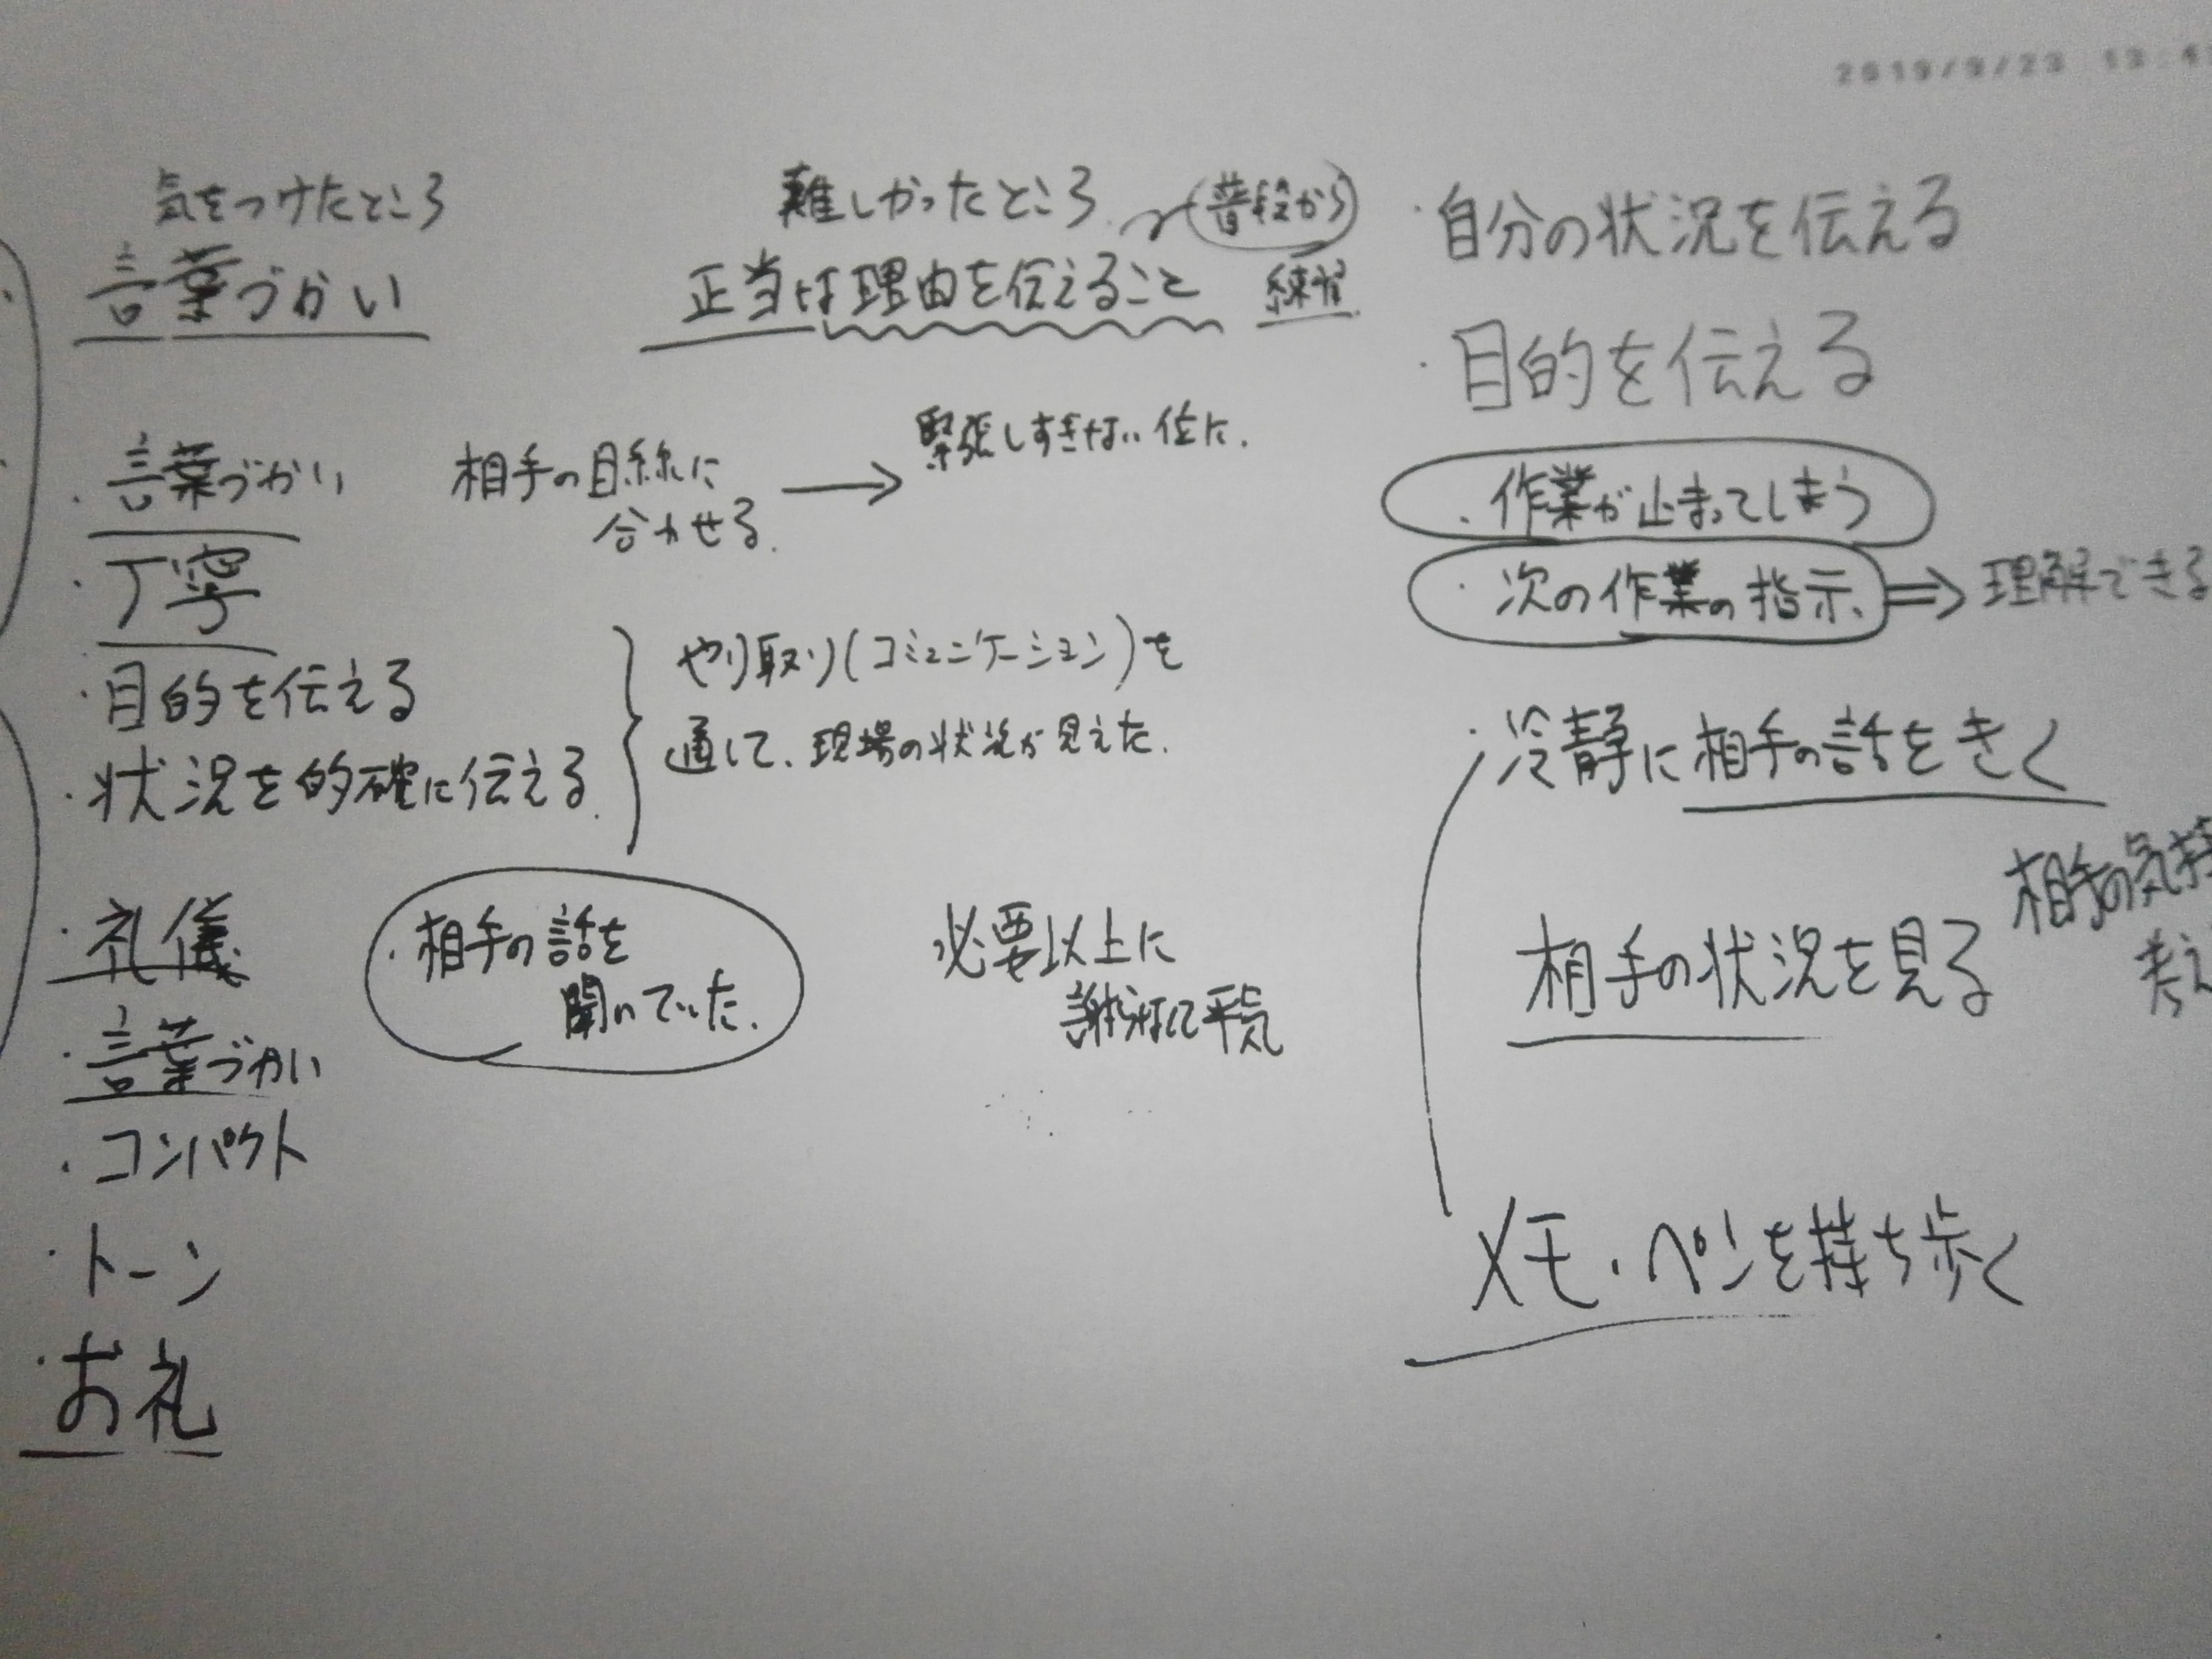 2019/9/23 13:4
気をつけたところ
言葉づかい
・言葉づかい
・丁寧
・目的を伝える
・状況を的確に伝える.
・礼儀
・言葉づかい
・コンパクト
・トーン
・お礼
難しかったところ
普段から
正当な理由を伝えること
練習
相手の目線に
合わせる.
→
緊張しすぎない位に.
やり取り(コミュニケーション)を
通して、現場の状況が見えた.
・相手の話を
聞いていた.
必要以上に
平気
・自分の状況を伝える
・目的を伝える
・作業が止まってしまう
・次の作業の指示、⇒理解できる
・冷静に相手の話をきく
相手の気持
考え
相手の状況を見る
メモ・ペンを持ち歩く